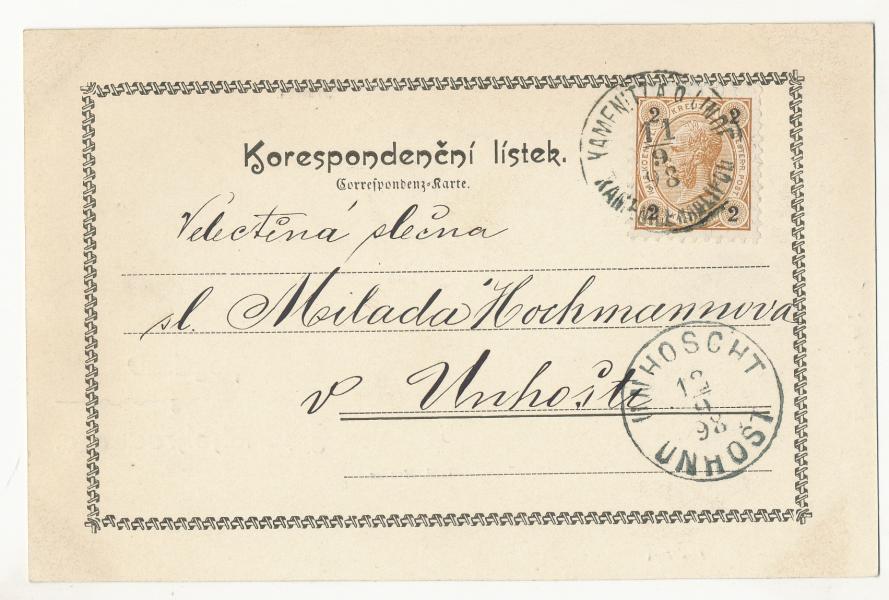 Korespondenční lístek.
Correspondenz-Karte.
2 KREUZER 2
2 2
11
9
98
Velectěná slečna
sl. Milada Hochmannova
v Unhošti.
UNHOSCHT
12
9
98
UNHOŠŤ